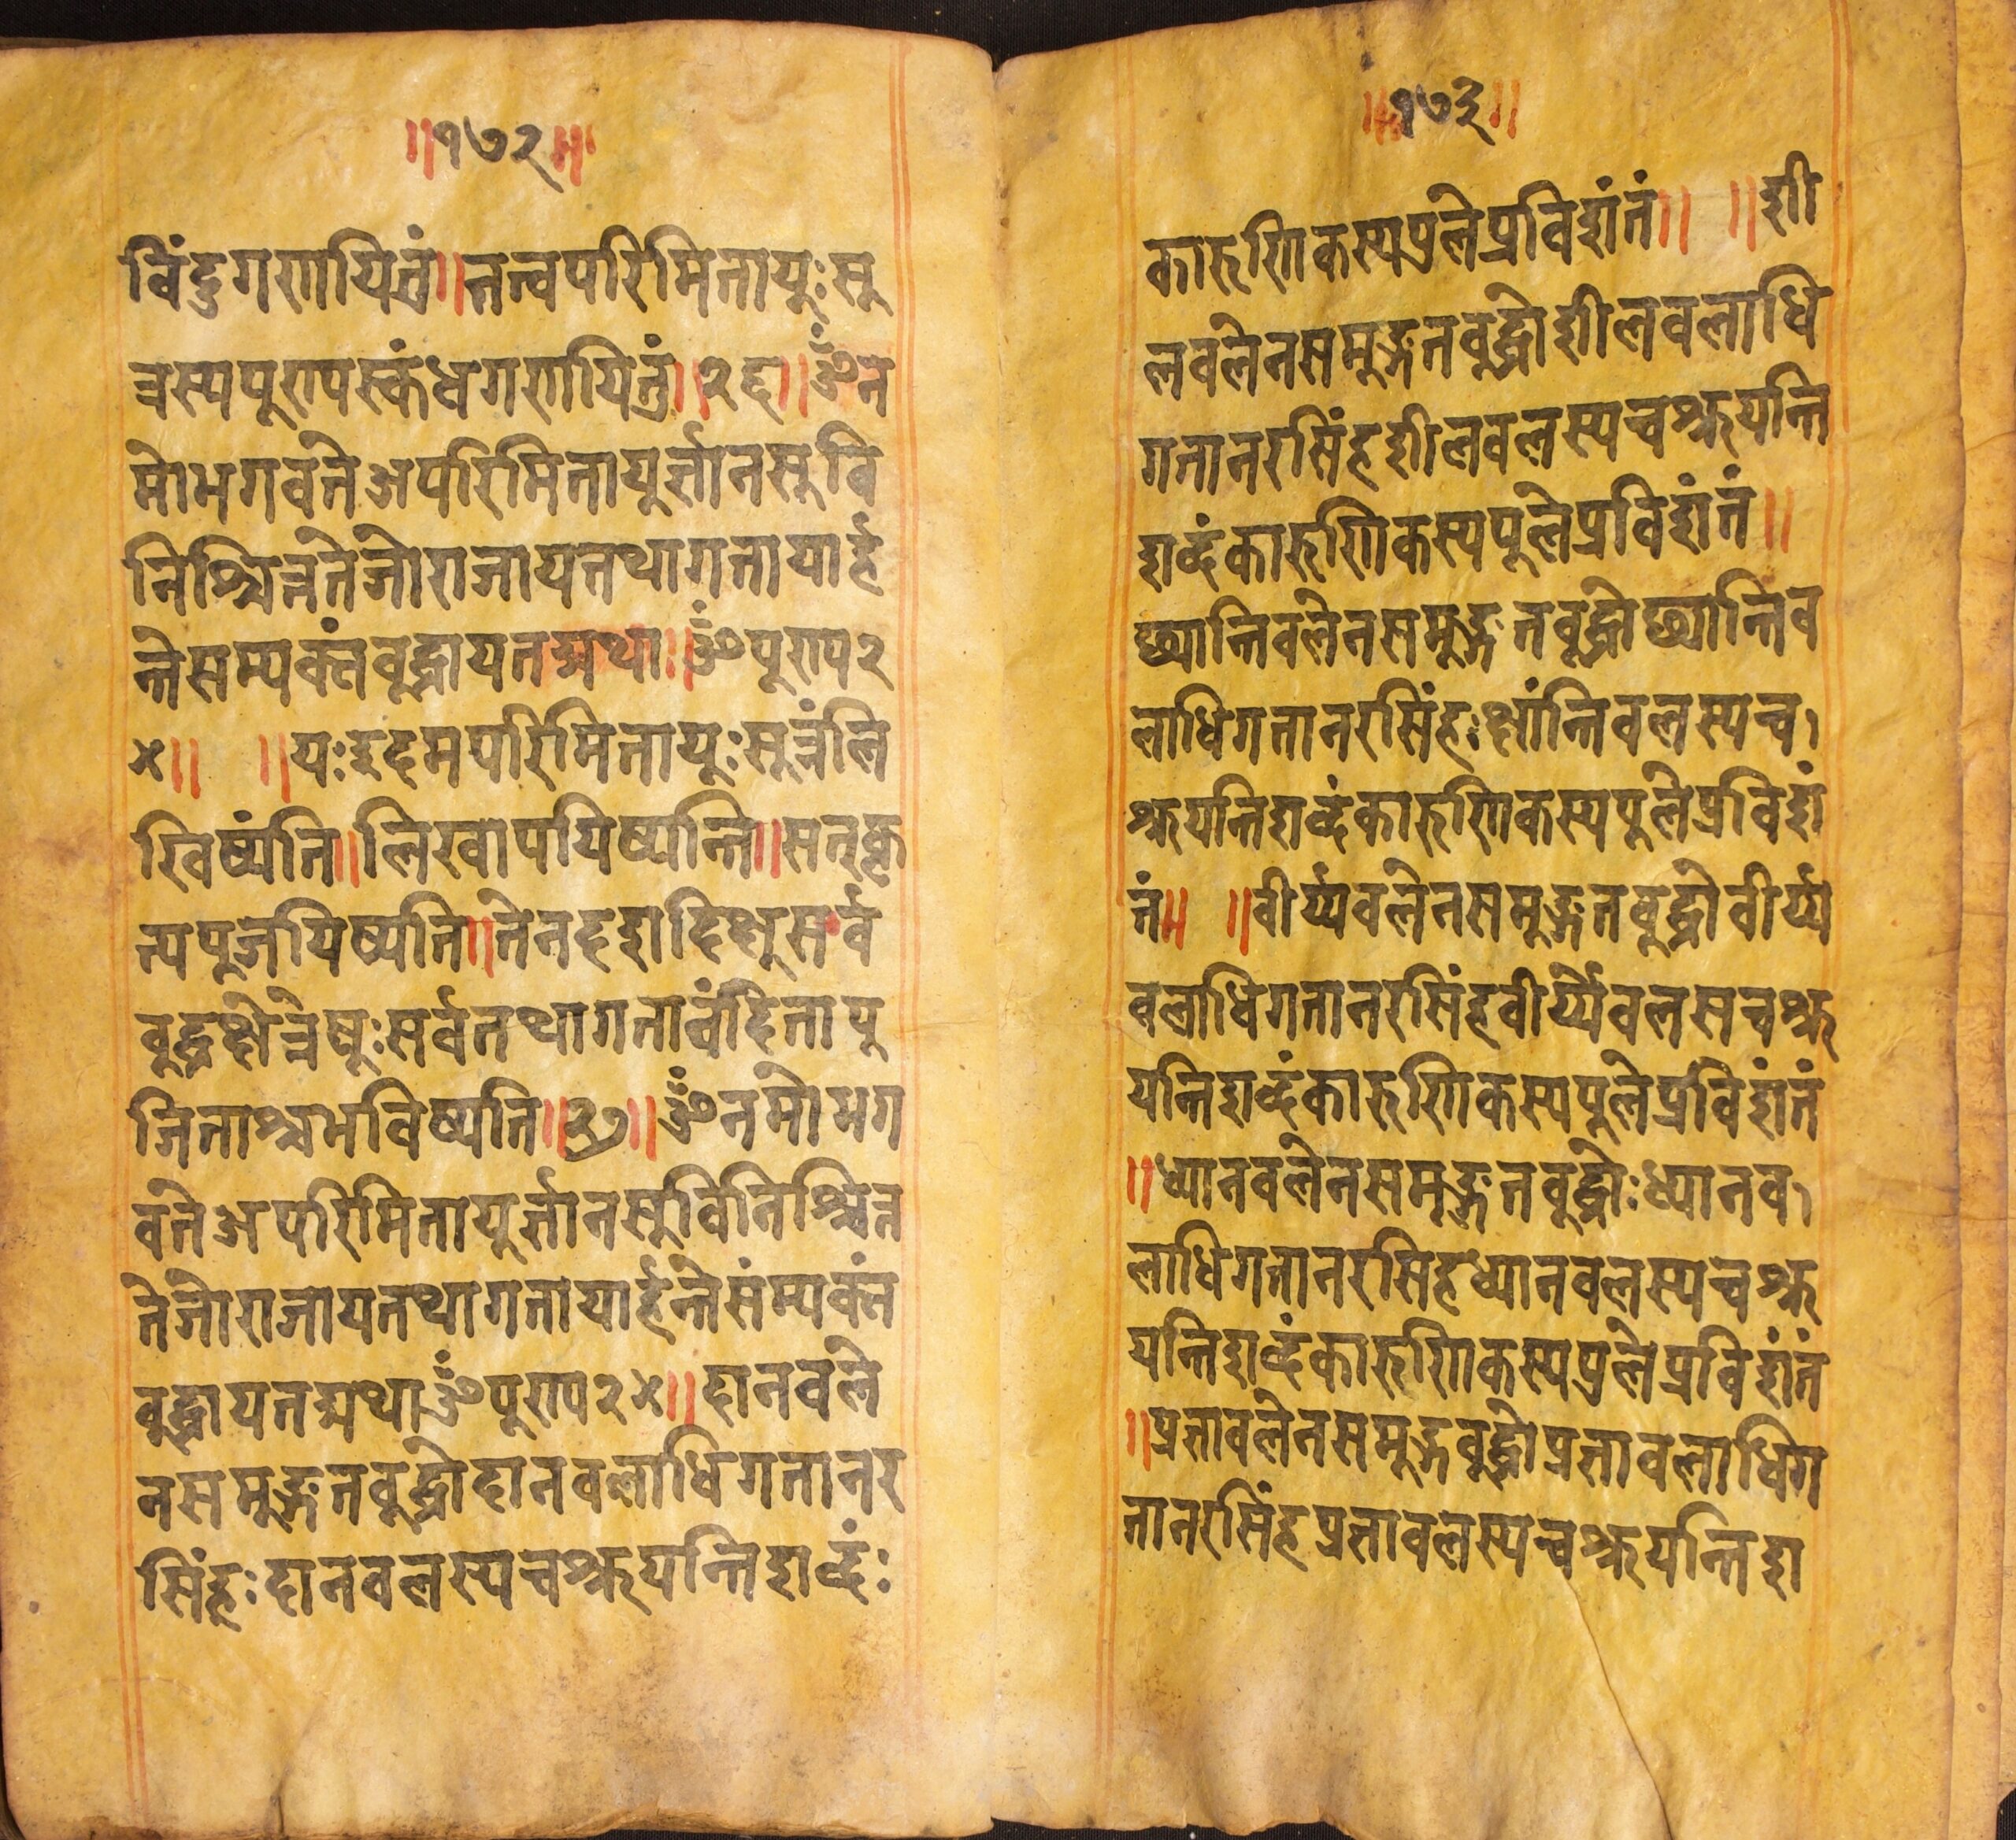 ॥१७२॥
विंदुगणयितुं॥नत्वपरिमितायुःसु
त्रस्यपूरापस्कंधगणयितुं॥२६॥ॐन
मोभगवतेअपरिमितायुर्ज्ञानसुवि
निश्चिततेजोराजायतथागतायार्ह
न्तेसम्यक्तंबुद्धायतद्यथा॥ॐपूराप२
४॥ ॥यःइदमपरिमितायुःसूत्रंलि
खिष्यंति॥लिखापयिष्यन्ति॥सत्कृ
त्यपूजयिष्यति॥तेनदशदिक्षुसर्व
बुद्धक्षेत्रेषुःसर्वतथागतावंदितापु
जिताश्चभविष्यति॥२७॥ॐनमोभग
वतेअपरिमितायुर्ज्ञानसुविनिश्चित
तेजोराजायतथागतायार्हन्तेसंम्यक्तं
बुद्धायतद्यथाॐपूराप२४॥दानवले
नसमुङ्गतबुद्धोदानवलाधिगतानर
सिंहःदानवलस्यचश्रूयन्तिशब्दंः
॥१७३॥
कारुणिकस्यपुलेप्रविशंतं॥ ॥शी
लवलेनसमुङ्गतबुद्धोशीलवलाधि
गतानरसिंहशीलवलस्यचश्रूयन्ति
शब्दंकारुणिकस्यपुलेप्रविशंतं॥
छ्यान्तिवलेनसमुङ्गतबुद्धोछ्यान्तिव
लाधिगतानरसिंहःक्षांन्तिवलस्यच
श्रूयन्तिशब्दंकारुणिकस्यपुलेप्रविशं
तं॥ ॥वीर्य्यवलेनसमुङ्गतबुद्धोवीर्य्य
वलाधिगतानरसिंहवीर्य्यवलसचश्रू
यन्तिशब्दंकारुणिकस्यपुलेप्रविशंतं
॥ध्यानवलेनसमुङ्गतबुद्धोःध्यानव
लाधिगतानरसिहध्यानवलस्यचश्रू
यन्तिशब्दंकारुणिकस्यपुलेप्रविशंतं
॥प्रज्ञावलेनसमुङ्गबुद्धोप्रज्ञावलाधिग
तानरसिंहप्रज्ञावलस्यचश्रूयन्तिश